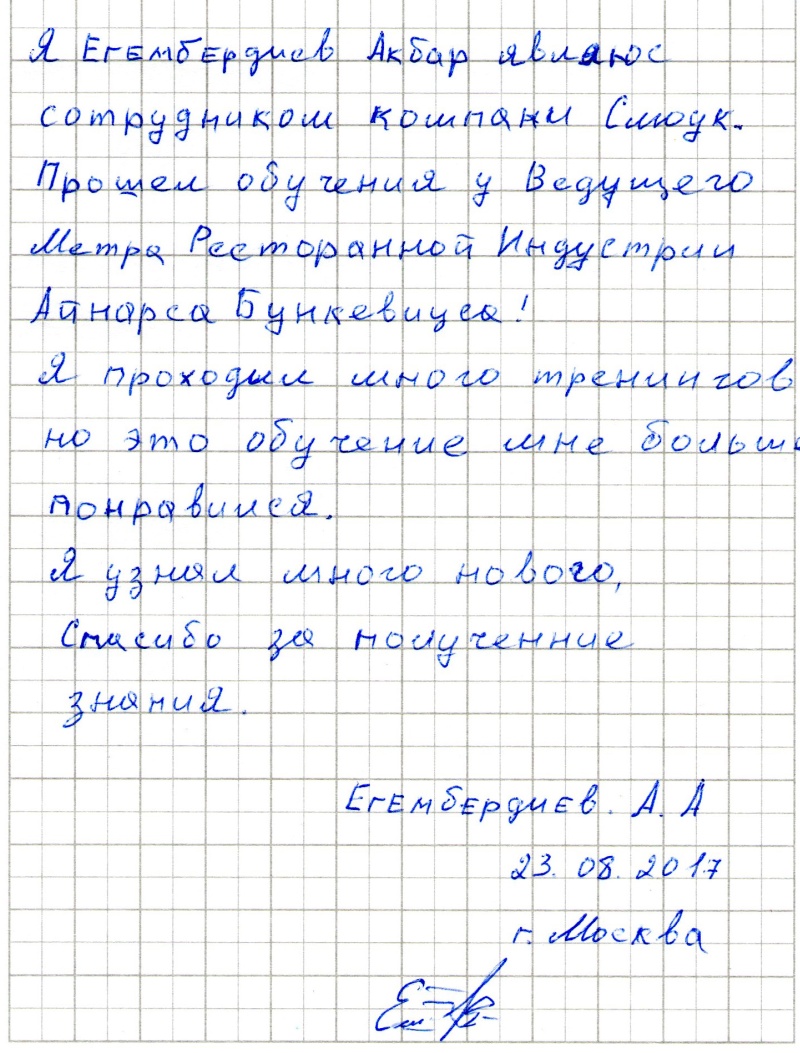 Я Егембердиев Акбар являюс
сотрудником компани Смоук.
Прошел обучения у Ведущего
Метра Ресторанной Индустрии
Айнарса Бункевицса!
Я проходил много тренингов
но это обучение мне больше
понравился.
Я узнал много нового,
Спасибо за полученние
знания.
Егембердиев. А. А
23. 08. 2017
г. Москва